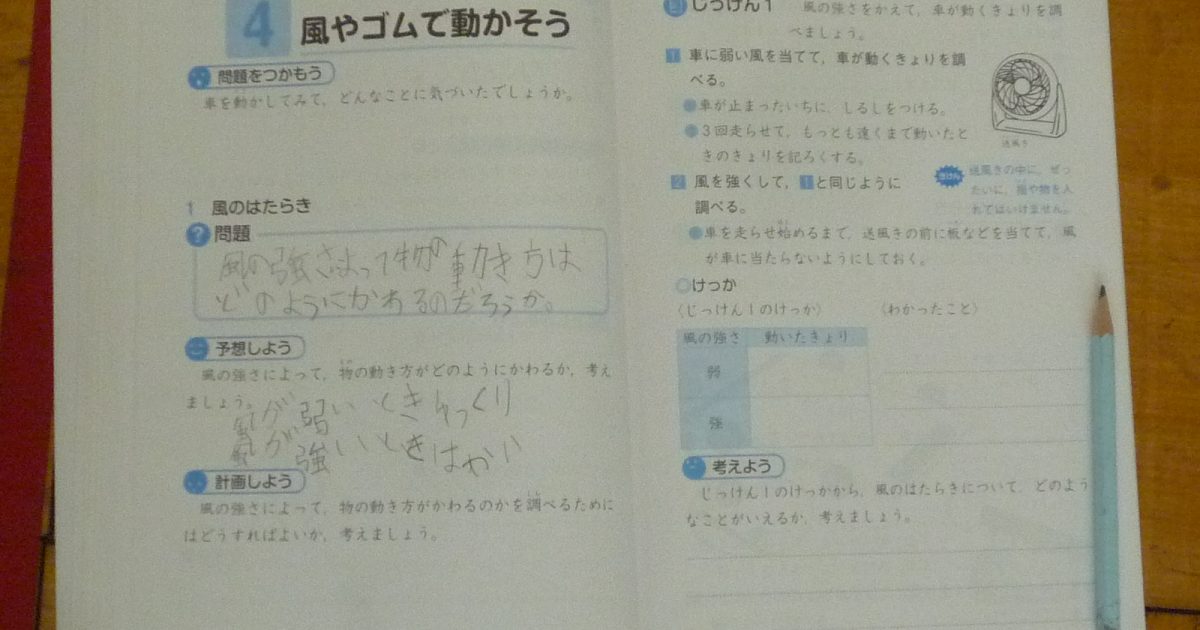 4 風やゴムで動かそう
問題をつかもう
車を動かしてみて，どんなことに気づいたでしょうか。
1 風のはたらき
? 問題
風の強さよって物の動き方は
どのようにかわるのだろうか。
予想しよう
風の強さによって，物の動き方がどのようにかわるか，考え
ましょう。
風が弱いときゆっくり
風が強いときはやい
計画しよう
風の強さによって，物の動き方がかわるのかを調べるために
はどうすればよいか，考えましょう。
じっけん1 風の強さをかえて，車が動くきょりを調
べましょう。
1 車に弱い風を当てて，車が動くきょりを調
べる。
車が止まったいちに，しるしをつける。
3回走らせて，もっとも遠くまで動いたと
きのきょりを記ろくする。
送風き
2 風を強くして，1と同じように
調べる。
きけん 送風きの中に，ぜっ
たいに，指や物を入
れてはいけません。
車を走らせ始めるまで，送風きの前に板などを当てて，風
が車に当たらないようにしておく。
けっか
〈じっけん1のけっか〉 〈わかったこと〉
風の強さ 動いたきょり
弱
強
考えよう
じっけん1のけっかから，風のはたらきについて，どのよう
なことがいえるか，考えましょう。